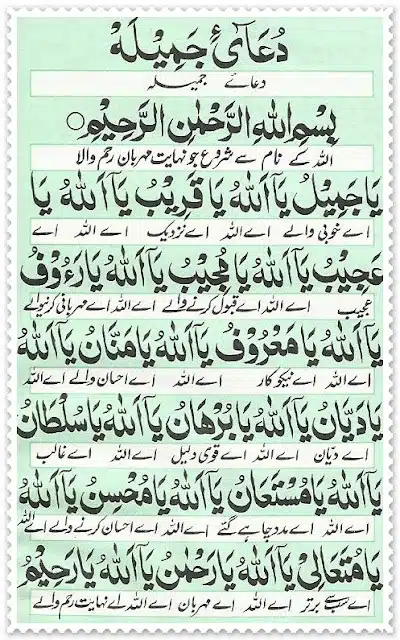 دُعَائے جَمِيْلَهْ
دعائے جمیلہ
بِسْمِ اللهِ الرَّحْمٰنِ الرَّحِيْمِ ○
اللہ کے نام سے شروع جو نہایت مہربان رحم والا
يَا جَمِيْلُ يَآ اَللهُ يَا قَرِيْبُ يَآ اَللهُ يَا
اے خوبی والے اے اللہ اے نزدیک اے اللہ اے
عَجِيْبُ يَآ اَللهُ يَا مُجِيْبُ يَآ اَللهُ يَا رَءُوْفُ
عجیب اے اللہ اے قبول کرنے والے اے اللہ اے مہربانی کرنیوالے
يَآ اَللهُ يَا مَعْرُوْفُ يَآ اَللهُ يَا مَنَّانُ يَآ اَللهُ
اے اللہ اے نیکوکار اے اللہ اے احسان والے اے اللہ
يَا دَيَّانُ يَآ اَللهُ يَا بُرْهَانُ يَآ اَللهُ يَا سُلْطَانُ
اے دیان اے اللہ اے قوی دلیل اے اللہ اے غالب
يَآ اَللهُ يَا مُسْتَعَانُ يَآ اَللهُ يَا مُحْسِنُ يَآ اَللهُ
اے اللہ اے مدد چاہے گئے اے اللہ اے احسان کرنے والے اے اللہ
يَا مُتَعَالِىْ يَآ اَللهُ يَا رَحْمٰنُ يَآ اَللهُ يَا رَحِيْمُ
اے سب سے برتر اے اللہ اے مہربان اے اللہ اے نہایت رحم والے